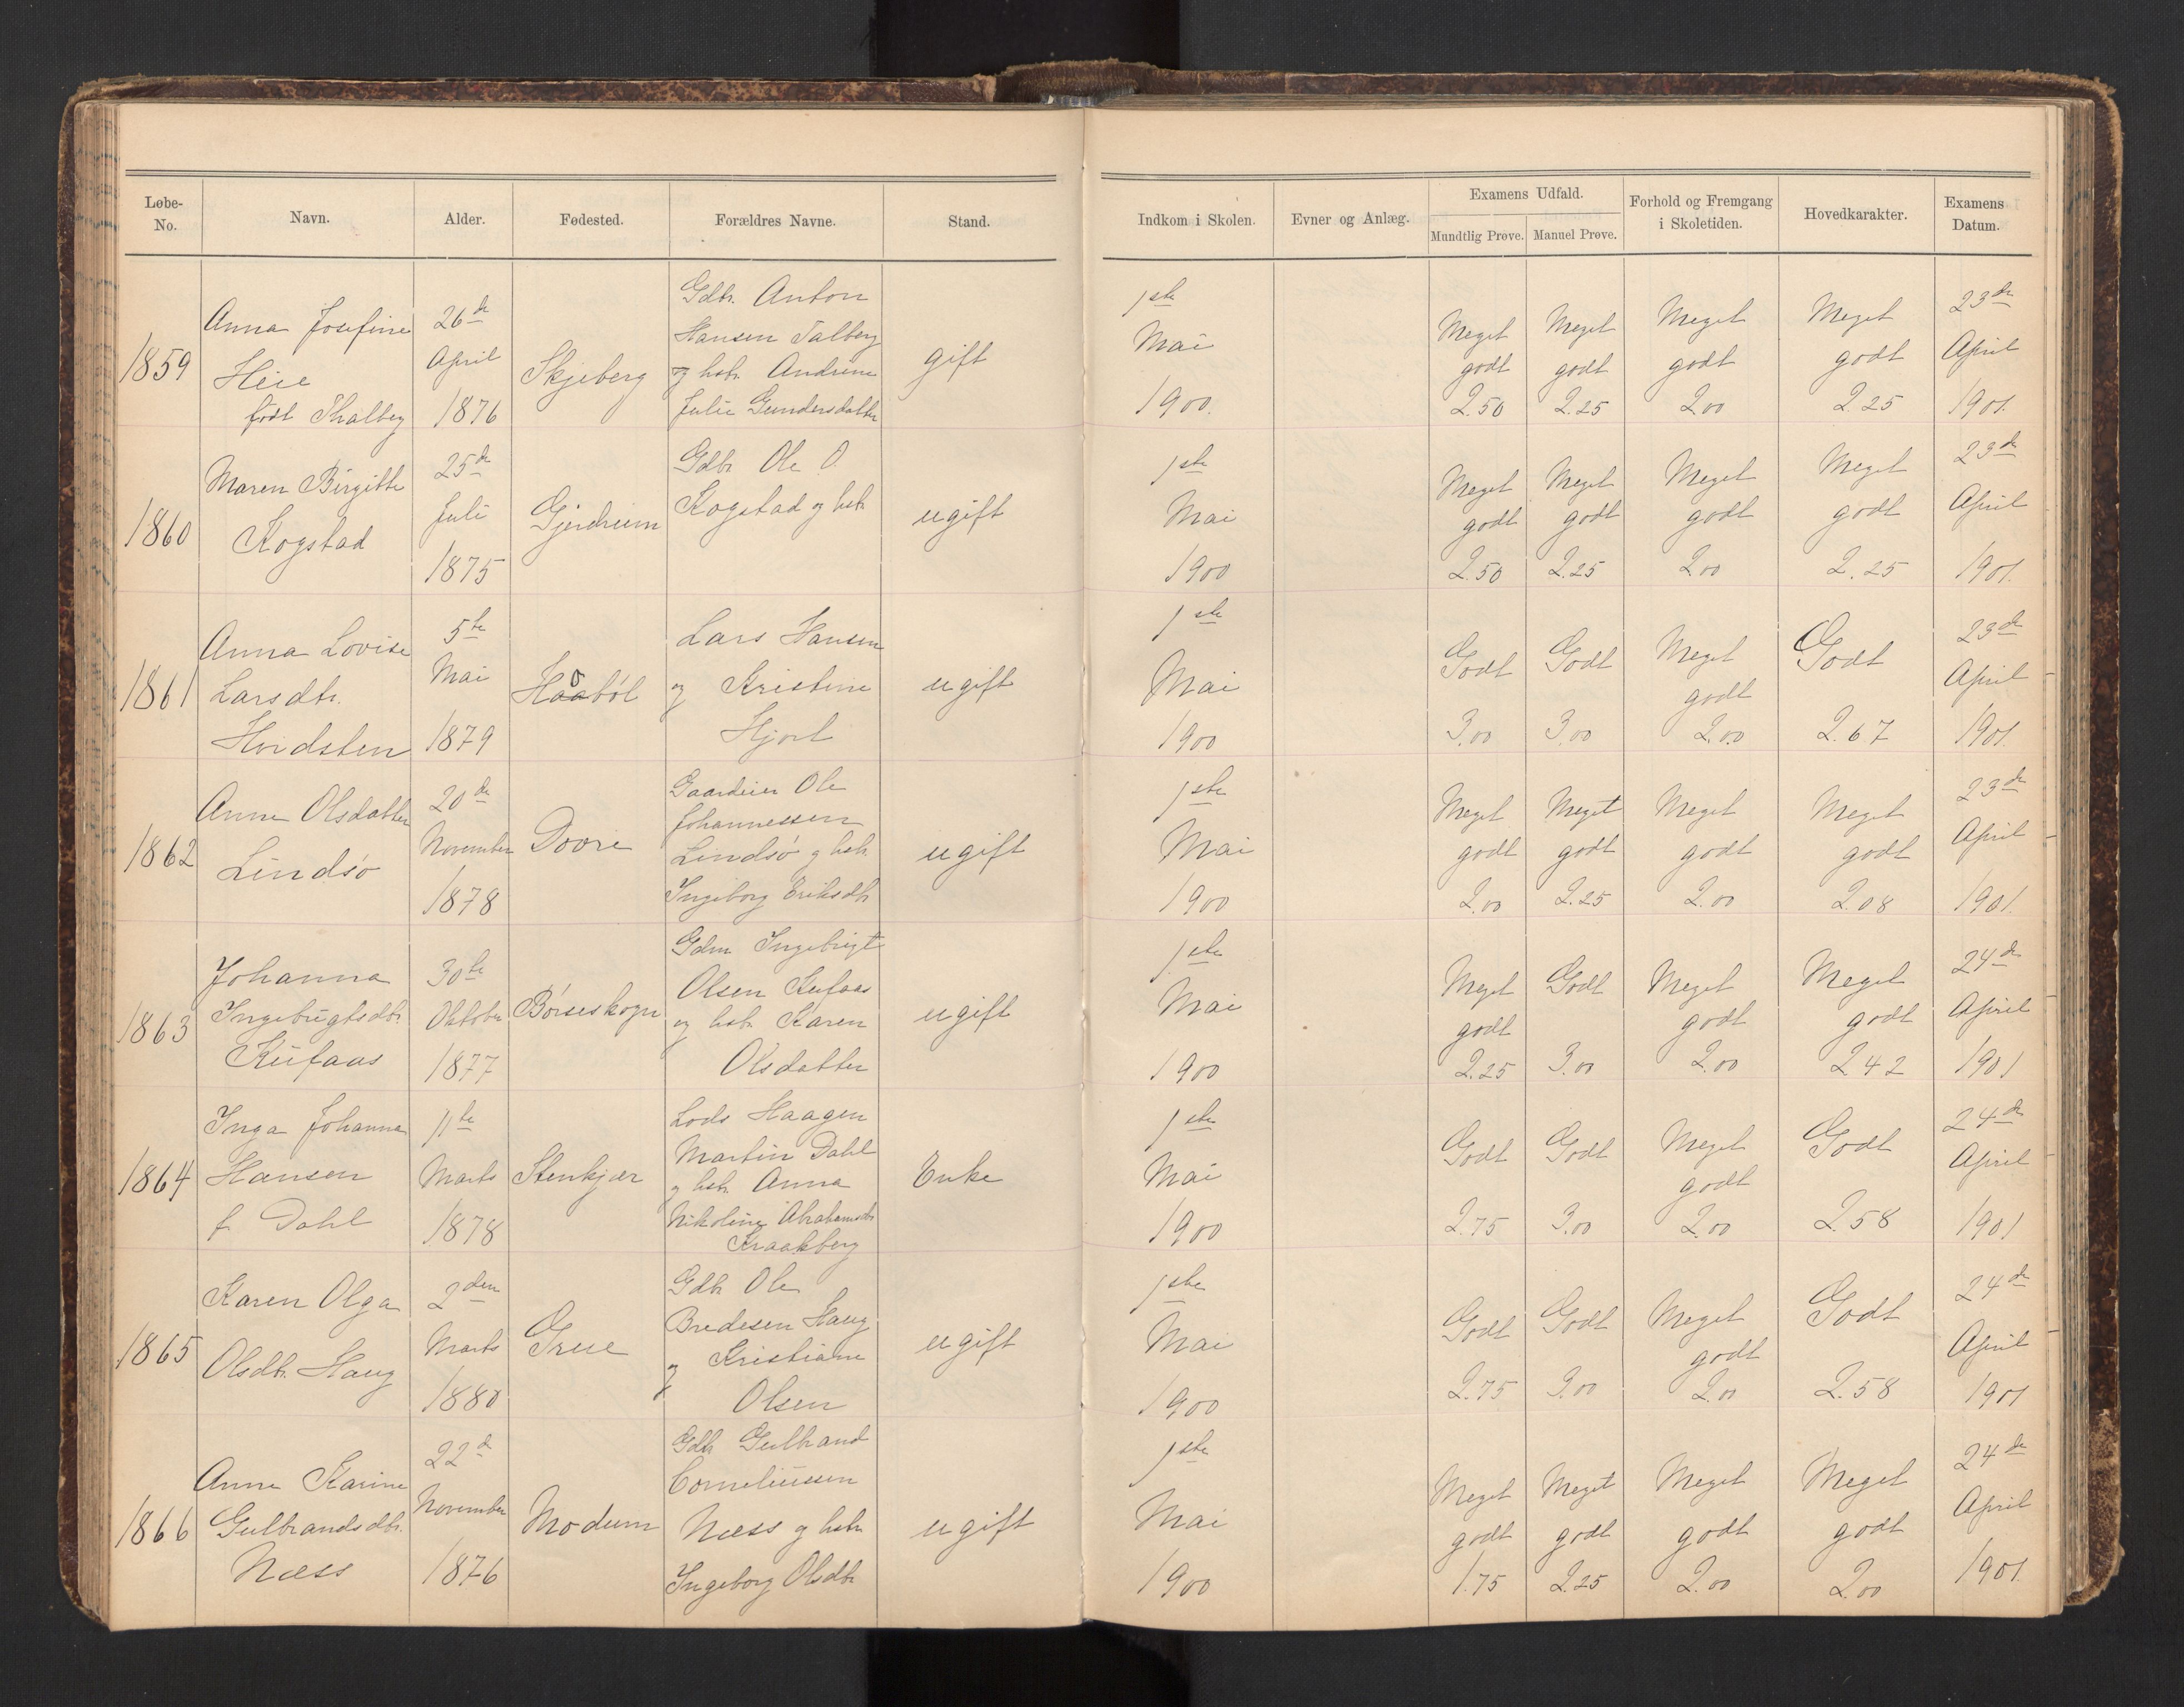 Løbe-No. Navn. Alder. Fødested. Forældres Navne. Stand. Indkom i Skolen. Evner og Anlæg. Examens Udfald. Mundtlig Prøve. Manuel Prøve. Forhold og Fremgang i Skoletiden. Hovedkarakter. Examens Datum.
1859
Anna Josefine
Heie
født Thalberg
26de
April
1876
Skjeberg
Gdb. Anton
Hansen Talberg
og hstr. Andrine
Julie Gundersdatter
gift
1ste
Mai
1900.
Meget
godt
2.50
Meget
godt
2.25
Meget
godt
2.00
Meget
godt
2.25
23de
April
1901.
1860
Maren Birgitte
Kogstad
25de
Juli
1875
Gjerdrum
Gdbr. Ole O.
Kogstad og hstr.
ugift
1ste
Mai
1900
Meget
godt
2.50
Meget
godt
2.25
Meget
godt
2.00
Meget
godt
2.25
23de
April
1901.
1861
Anna Lovise
Larsdtr.
Hvidsten
5te
Mai
1879
Haabøl
Lars Hansen
og Kristine
Hjort
ugift
1ste
Mai
1900
Godt
3.00
Godt
3.00
Meget
godt
2.00
Godt
2.67
23de
April
1901.
1862
Anne Olsdatter
Lindsø
20de
November
1878
Dovre
Gaardeier Ole
Johannessen
Lindsø og hstr.
Ingeborg Eriksdtr.
ugift
1ste
Mai
1900
Meget
godt
2.00
Meget
godt
2.25
Meget
godt
2.00
Meget
godt
2.08
23de
April
1901.
1863
Johanna
Ingebrigtsdtr.
Kufaas
30te
Oktober
1877
Børseskogn
Gdm Ingebrigt
Olsen Kufaas
og hstr. Karen
Olsdatter
ugift
1ste
Mai
1900
Meget
godt
2.25
Godt
3.00
Meget
godt
2.00
Meget
godt
2.42
24de
April
1901
1864
Inga Johanna
Hansen
f. Dahl
11te
Marts
1878
Stenkjær
Lods Haagen
Martin Dahl
og hstr. Anna
Nikoline Abrahamsdtr.
Kraakberg
Enke
1ste
Mai
1900
Godt
2.75
Godt
3.00
Meget
godt
2.00
Godt
2.58
24de
April
1901
1865
Karen Olga
Olsdtr. Haug
2den
Marts
1880
Grue
Gdbr. Ole
Bredesen Haug
og Kristiane
Olsen
ugift
1ste
Mai
1900
Godt
2.75
Godt
3.00
Meget
godt
2.00
Godt
2.58
24de
April
1901
1866
Anne Karine
Gulbrandsdtr.
Næss
22de
November
1876
Modum
Gdbr. Gulbrand
Corneliussen
Næss og hstr.
Ingeborg Olsdtr.
ugift
1ste
Mai
1900
Meget
godt
1.75
Meget
godt
2.25
Meget
godt
2.00
Meget
godt
2.00
24de
April
1901.